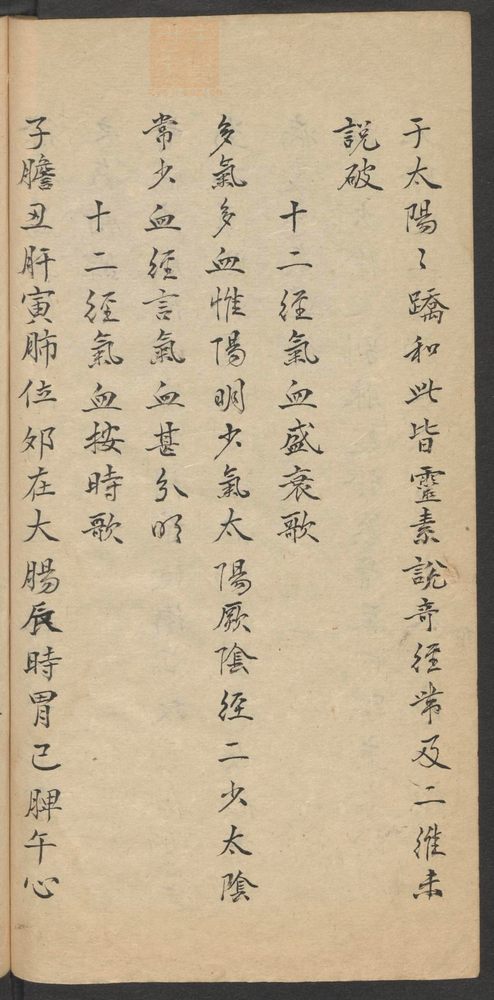 于太陽〻蹻和此皆靈素說奇經帶及二維未
說破
十二經氣血盛衰歌
多氣多血惟陽明少氣太陽厥陰經二少太陰
常少血經言氣血甚分明
十二經氣血按時歌
子膽丑肝寅肺位卯在大腸辰時胃巳脾午心